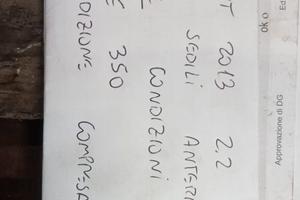 T 2013 2.2
SEDILI ANTERI
E CONDIZIONI
€ 350
DIZIONE COMPRESA
ok o
Ed
Approvazione di DG